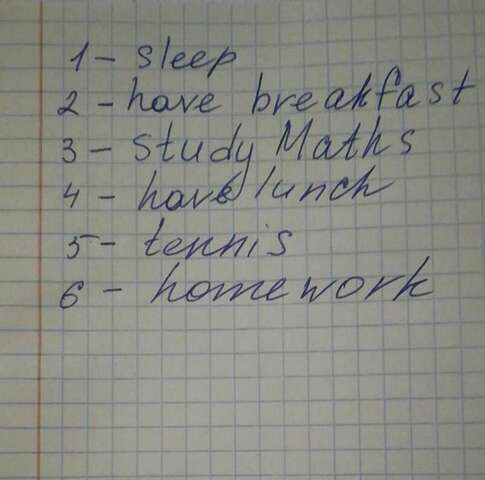 1 - sleep
2 - have breakfast
3 - study Maths
4 - have lunch
5 - tennis
6 - homework